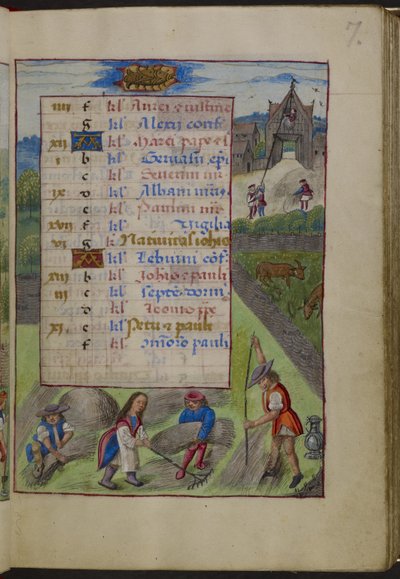 7.
iiii f kl Aurei et iustine
g kl Alexii conf
xii A kl Marci pape et
i b kl Geruasii epi
c kl Seuerini
ix d kl Albani mr
e kl Paulini
xvii f kl Vigilia
vi g Natiuitas iohis
A kl Lebuini cof
xiii b kl Iohis et pauli
iii c kl Septe dormi
d kl Leonis ppe
xi e kl Petri et pauli
f kl pauli